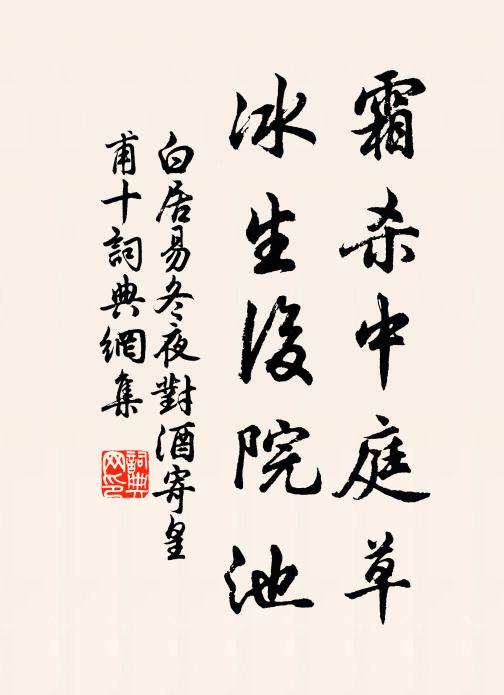 霜杀中庭草
冰生後院池
白居易冬夜對酒寄皇
甫十詞典網集
詞典網印